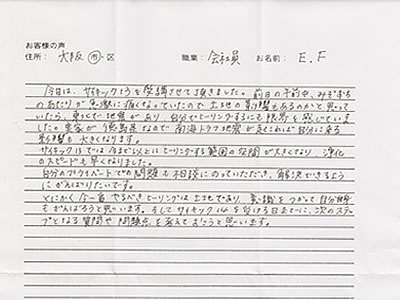 お客様の声
住所: 大阪 市・区 職業: 会社員 お名前: E.F
今日は、サイキック13を受講させて頂きました。前日の予約中、みぞおち
のあたりが急激に痛くなっていたので土地の影響もあるのかと思って
いたら、東北で地震があり、自分でヒーリングするにも限界を感じていま
した。実家が徳島県なので南海トラフ地震が起これば自分に来る
影響も大きくなります。
サイキック13では今まで以上にヒーリングする範囲の空間が大きくなり、浄化
のスピードも早くなりました。
自分のプライベートでの問題も相談にのっていただき、解決できるよう
にがんばりたいです。
とにかく今一番やるべきヒーリングは土地であり、意識をつかって自分自身
もがんばろうと思います。そしてサイキック14を受ける日までに、次のステッ
プとなる質問や問題点を考えておこうと思います。